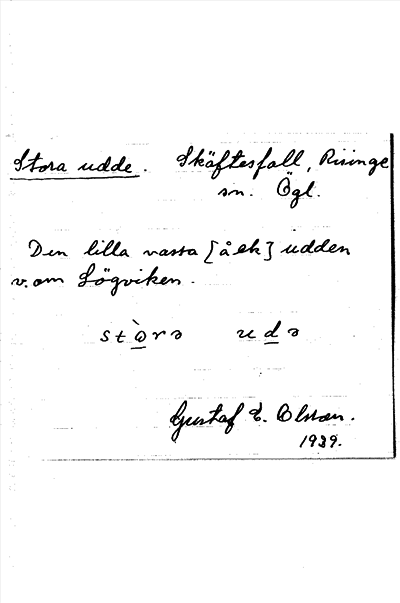 Stora udde. Skäftesfall, Risinge
sn. Ögl.
Den lilla vassa [å ek] udden
v. om Sögviken.
stòrə udə
Gustaf E. Olsson.
1939.